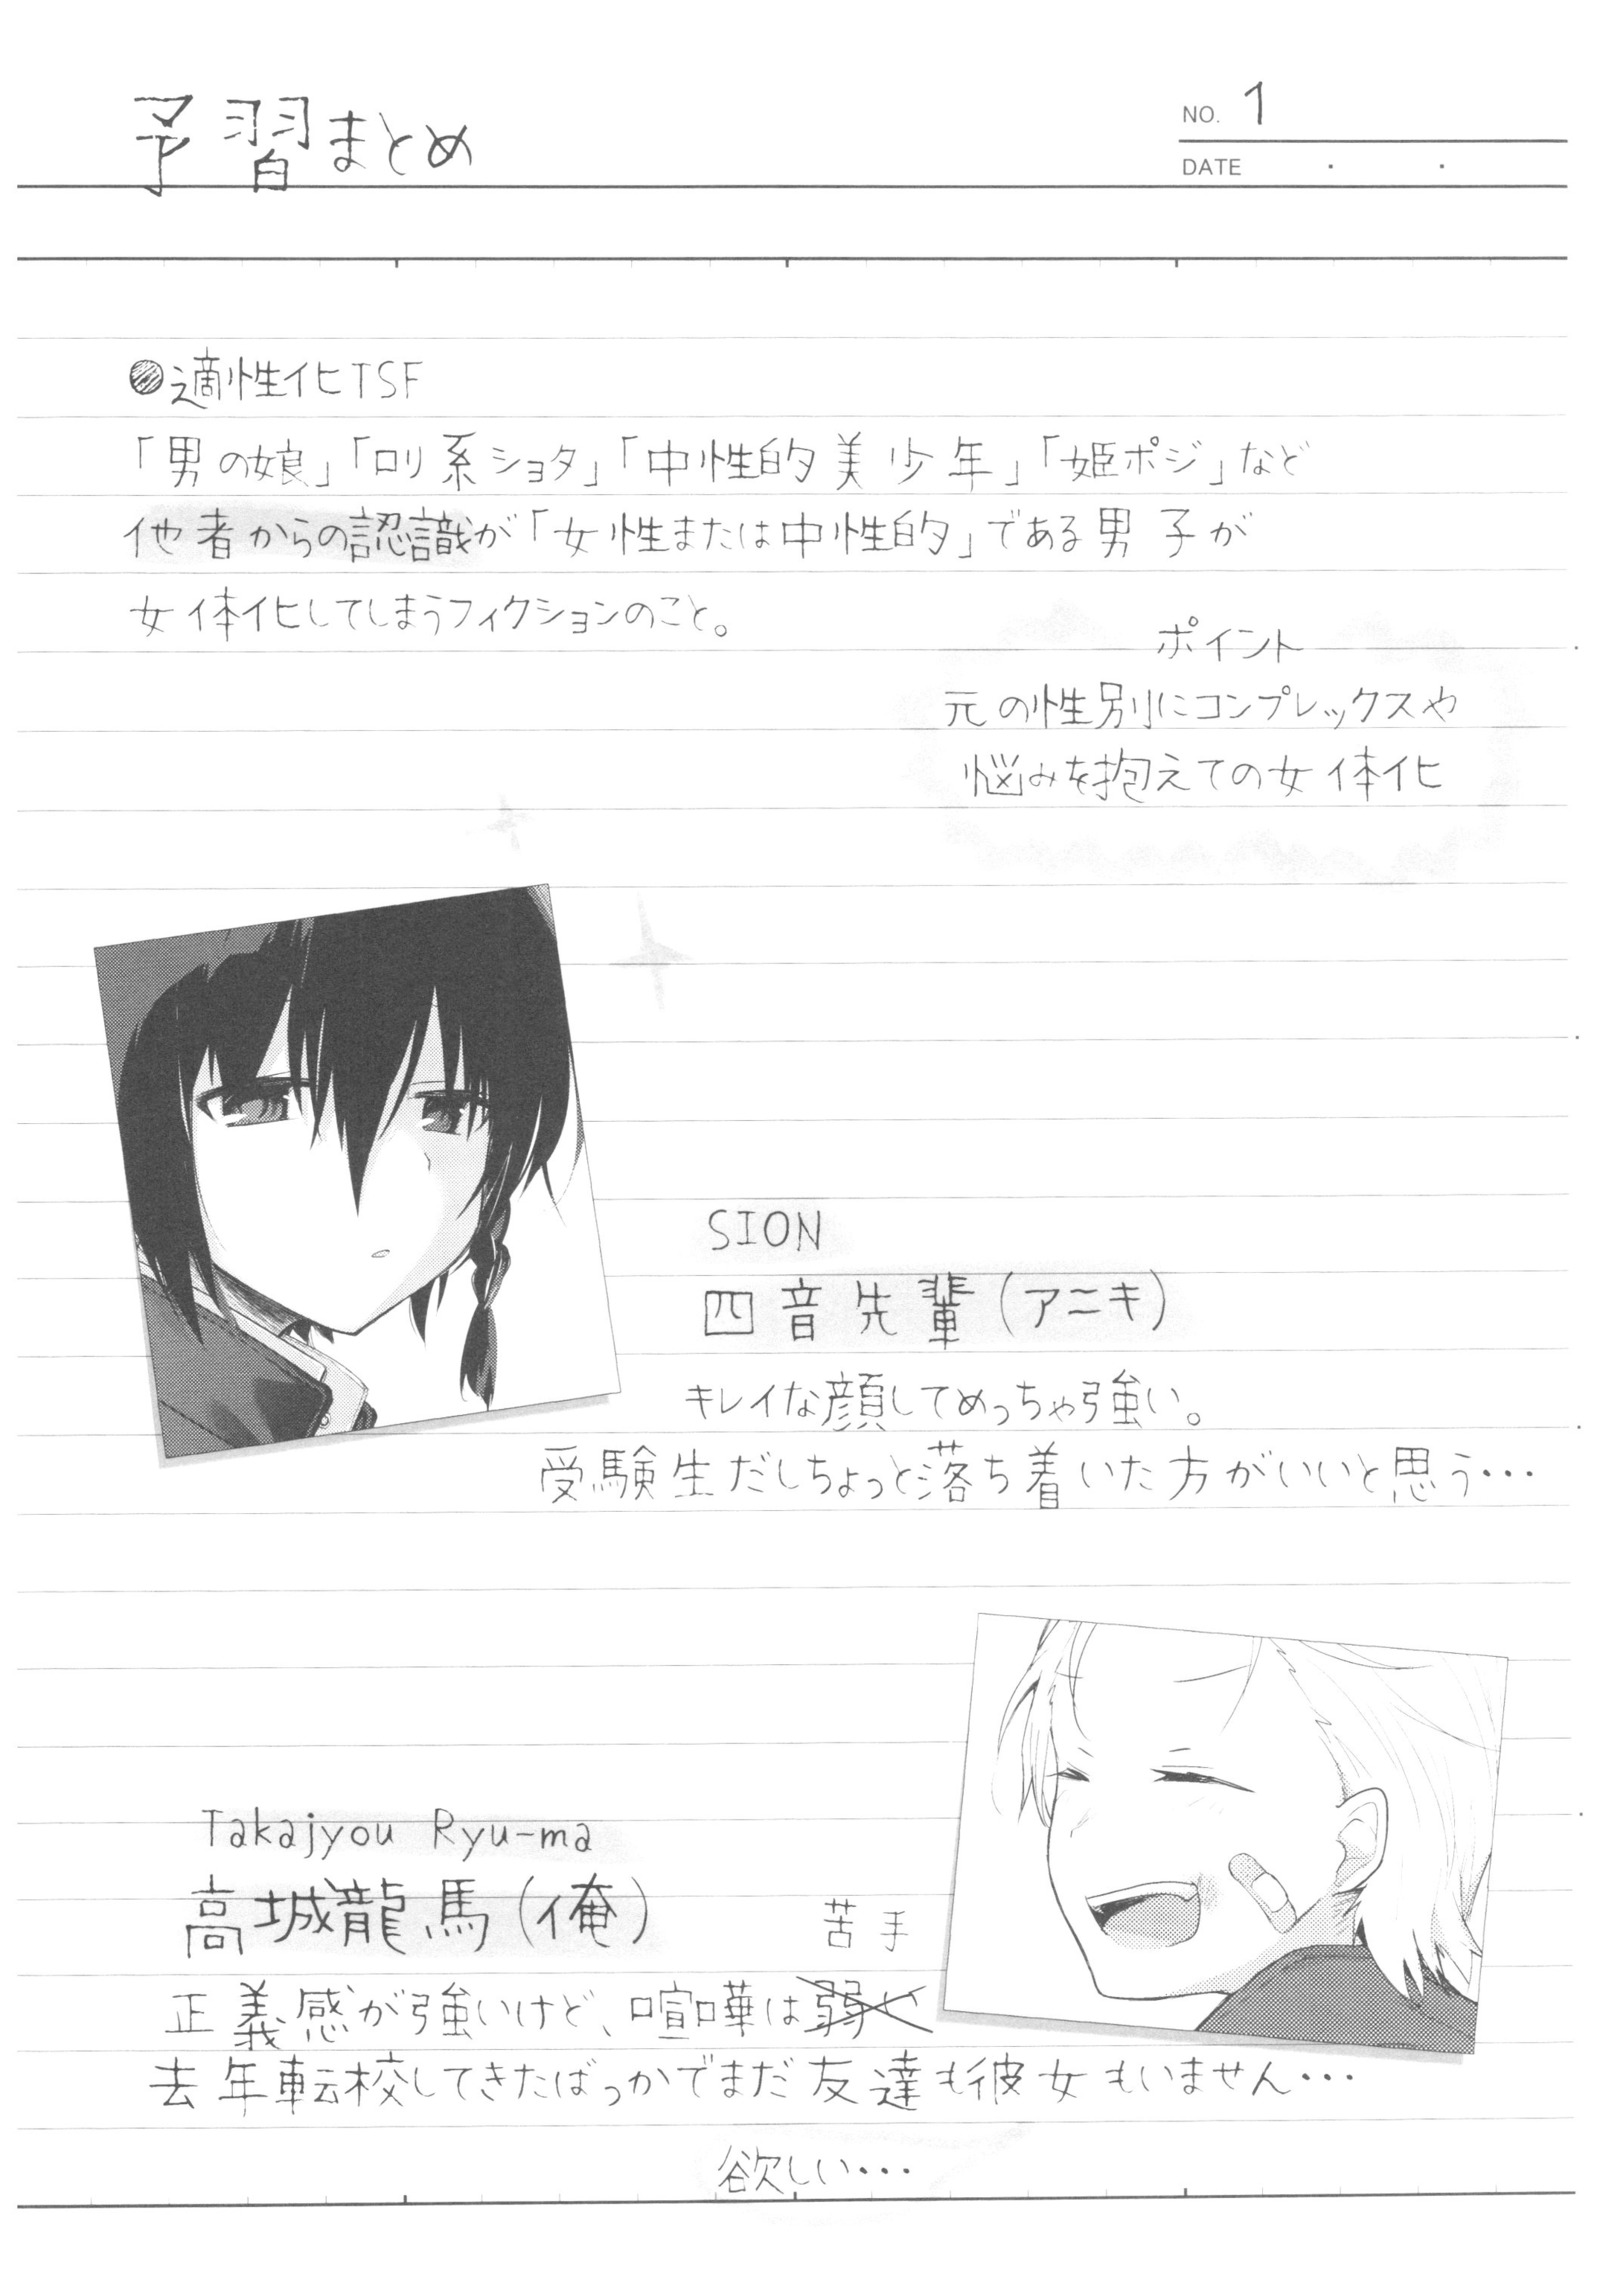 予習まとめ
NO. 1
DATE . .
●適性化TSF
「男の娘」「ロリ系ショタ」「中性的美少年」「姫ポジ」など
他者からの認識が「女性または中性的」である男子が
女体化してしまうフィクションのこと。
ポイント
元の性別にコンプレックスや
悩みを抱えての女体化
SION
四音先輩(アニキ)
キレイな顔してめっちゃ強い。
受験生だしちょっと落ち着いた方がいいと思う・・・
Takajyou Ryu-ma
高城龍馬(俺)
苦手
正義感が強いけど、喧嘩は弱い
去年転校してきたばっかでまだ友達も彼女もいません・・・
欲しい・・・